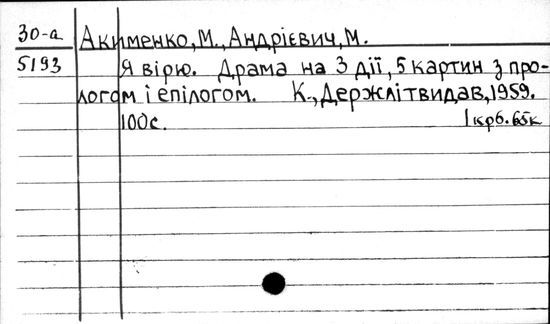 30-а Акименко, М., Андрієвич, М.
5193 Я вірю. Драма на 3 дії, 5 картин з про-
логом і епілогом. К., Держлітвидав, 1959.
100с. 1 крб. 65к